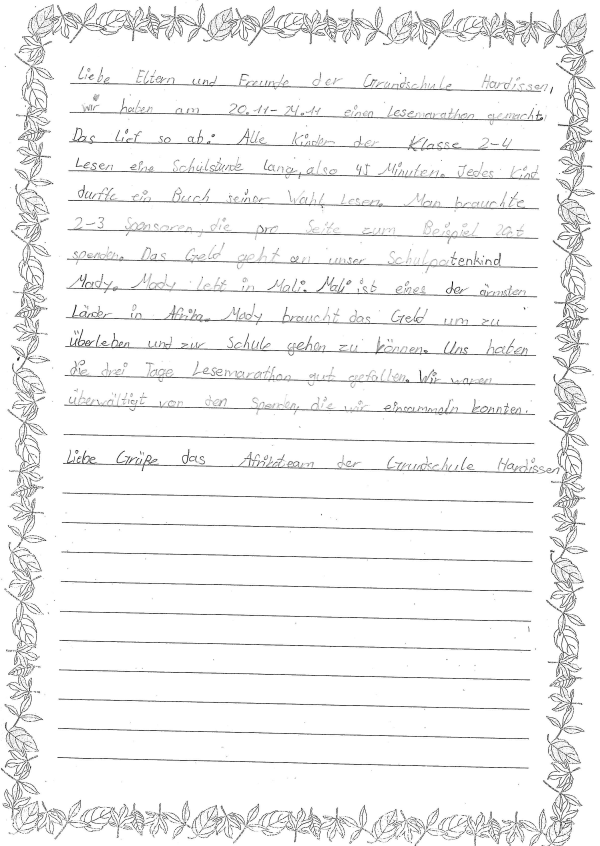 Liebe Eltern und Freunde der Grundschule Hardissen,
wir haben am 20.11-24.11 einen Lesemarathon gemacht.
Das lief so ab: Alle Kinder der Klasse 2-4
Lesen eine Schulstunde lang, also 45 Minuten. Jedes Kind
durfte ein Buch seiner Wahl Lesen. Man brauchte
2-3 Sponsoren, die pro Seite zum Beispiel 20ct
spenden. Das Geld geht an unser Schulpatenkind
Mady. Mady lebt in Mali. Mali ist eines der ärmsten
Länder in Afrika. Mady braucht das Geld um zu
überleben und zur Schule gehen zu können. Uns haben
die drei Tage Lesemarathon gut gefallen. Wir waren
überwältigt von den Spenden, die wir einsammeln konnten.
Liebe Grüße das Afrikateam der Grundschule Hardissen